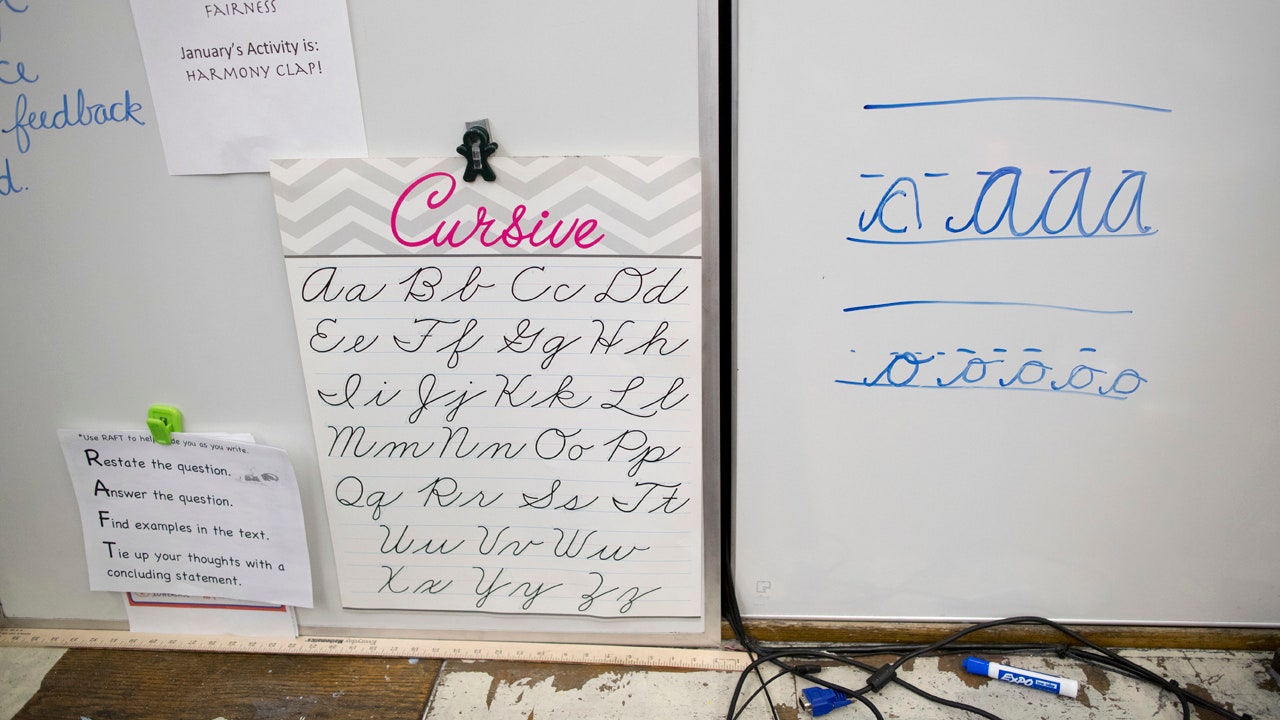 FAIRNESS
January's Activity is:
HARMONY CLAP!
feedback
d.
Cursive
Aa Bb Cc Dd
Ee Ff Gg Hh
Ii Jj Kk Ll
Mm Nn Oo Pp
Qq Rr Ss Tt
Uu Vv Ww
Xx Yy Zz
*Use RAFT to help de you as you write.
Restate the question.
Answer the question.
Find examples in the text.
Tie up your thoughts with a
concluding statement.
a a a a
o o o o o
Everyday Mathematics
EXPO